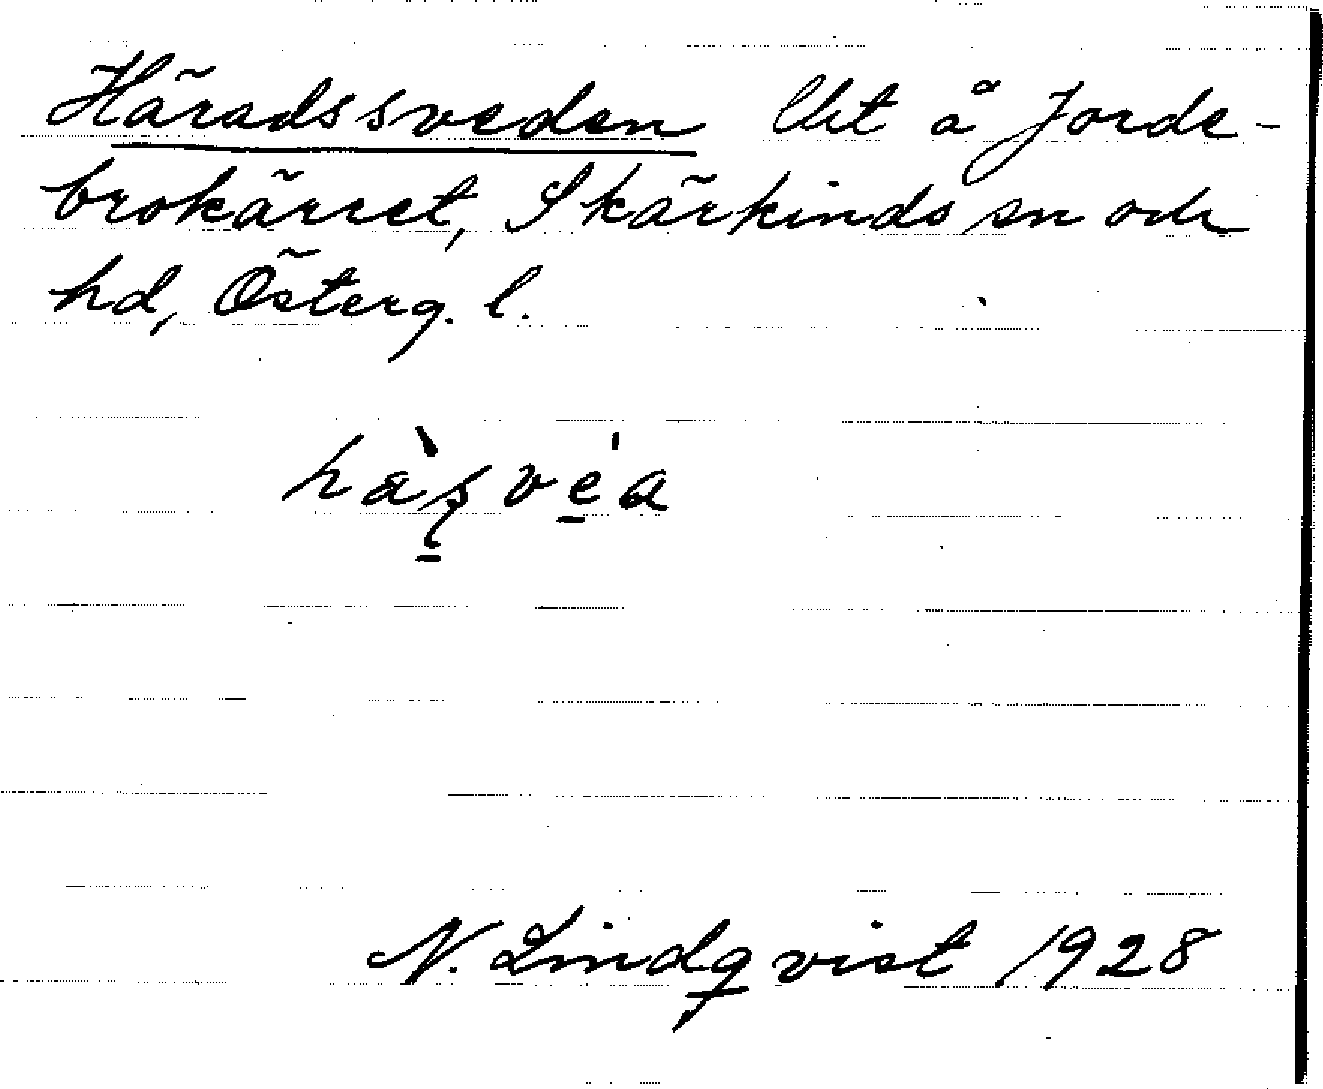 Häradssveden Ubt å Jorde-
brokärret, Skärkinds sn och
hd, Österg. l.
N. Lindqvist 1928